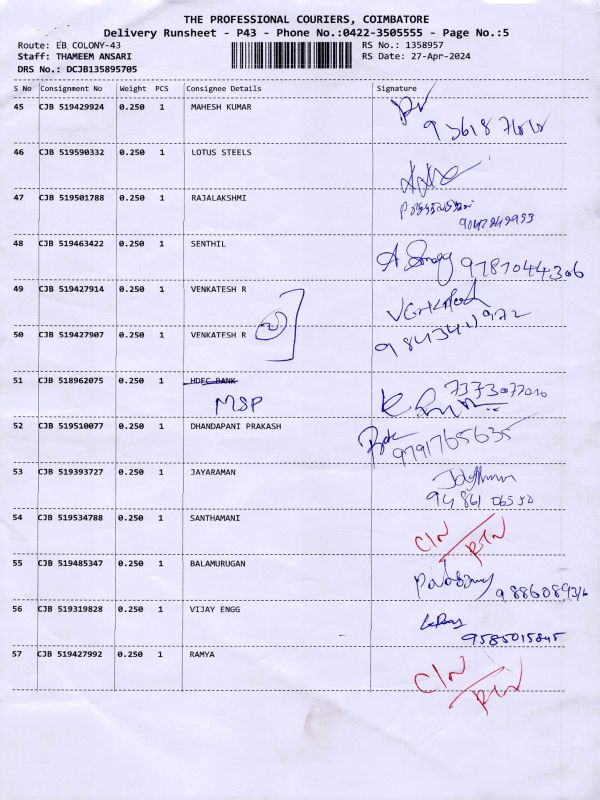 THE PROFESSIONAL COURIERS, COIMBATORE
Delivery Runsheet - P43 - Phone No.:0422-3505555 - Page No.:5
Route: EB COLONY-43 RS No.: 1358957
Staff: THAMEEM ANSARI RS Date: 27-Apr-2024
DRS No.: DCJB135895705
S No Consignment No Weight PCS Consignee Details Signature
45 CJB 519429924 0.250 1 MAHESH KUMAR
46 CJB 519590332 0.250 1 LOTUS STEELS
47 CJB 519501788 0.250 1 RAJALAKSHMI
9042849953
48 CJB 519463422 0.250 1 SENTHIL
9787044306
49 CJB 519427914 0.250 1 VENKATESH R
2
50 CJB 519427907 0.250 1 VENKATESH R
9843411972
51 CJB 518962075 0.250 1 HDFC BANK
7373077010
MSP
52 CJB 519510077 0.250 1 DHANDAPANI PRAKASH
9791765635
53 CJB 519393727 0.250 1 JAYARAMAN
94861 06550
54 CJB 519534788 0.250 1 SANTHAMANI
C/N RTN
55 CJB 519485347 0.250 1 BALAMURUGAN
9886089316
56 CJB 519319828 0.250 1 VIJAY ENGG
9585015845
57 CJB 519427992 0.250 1 RAMYA
C/N RTN